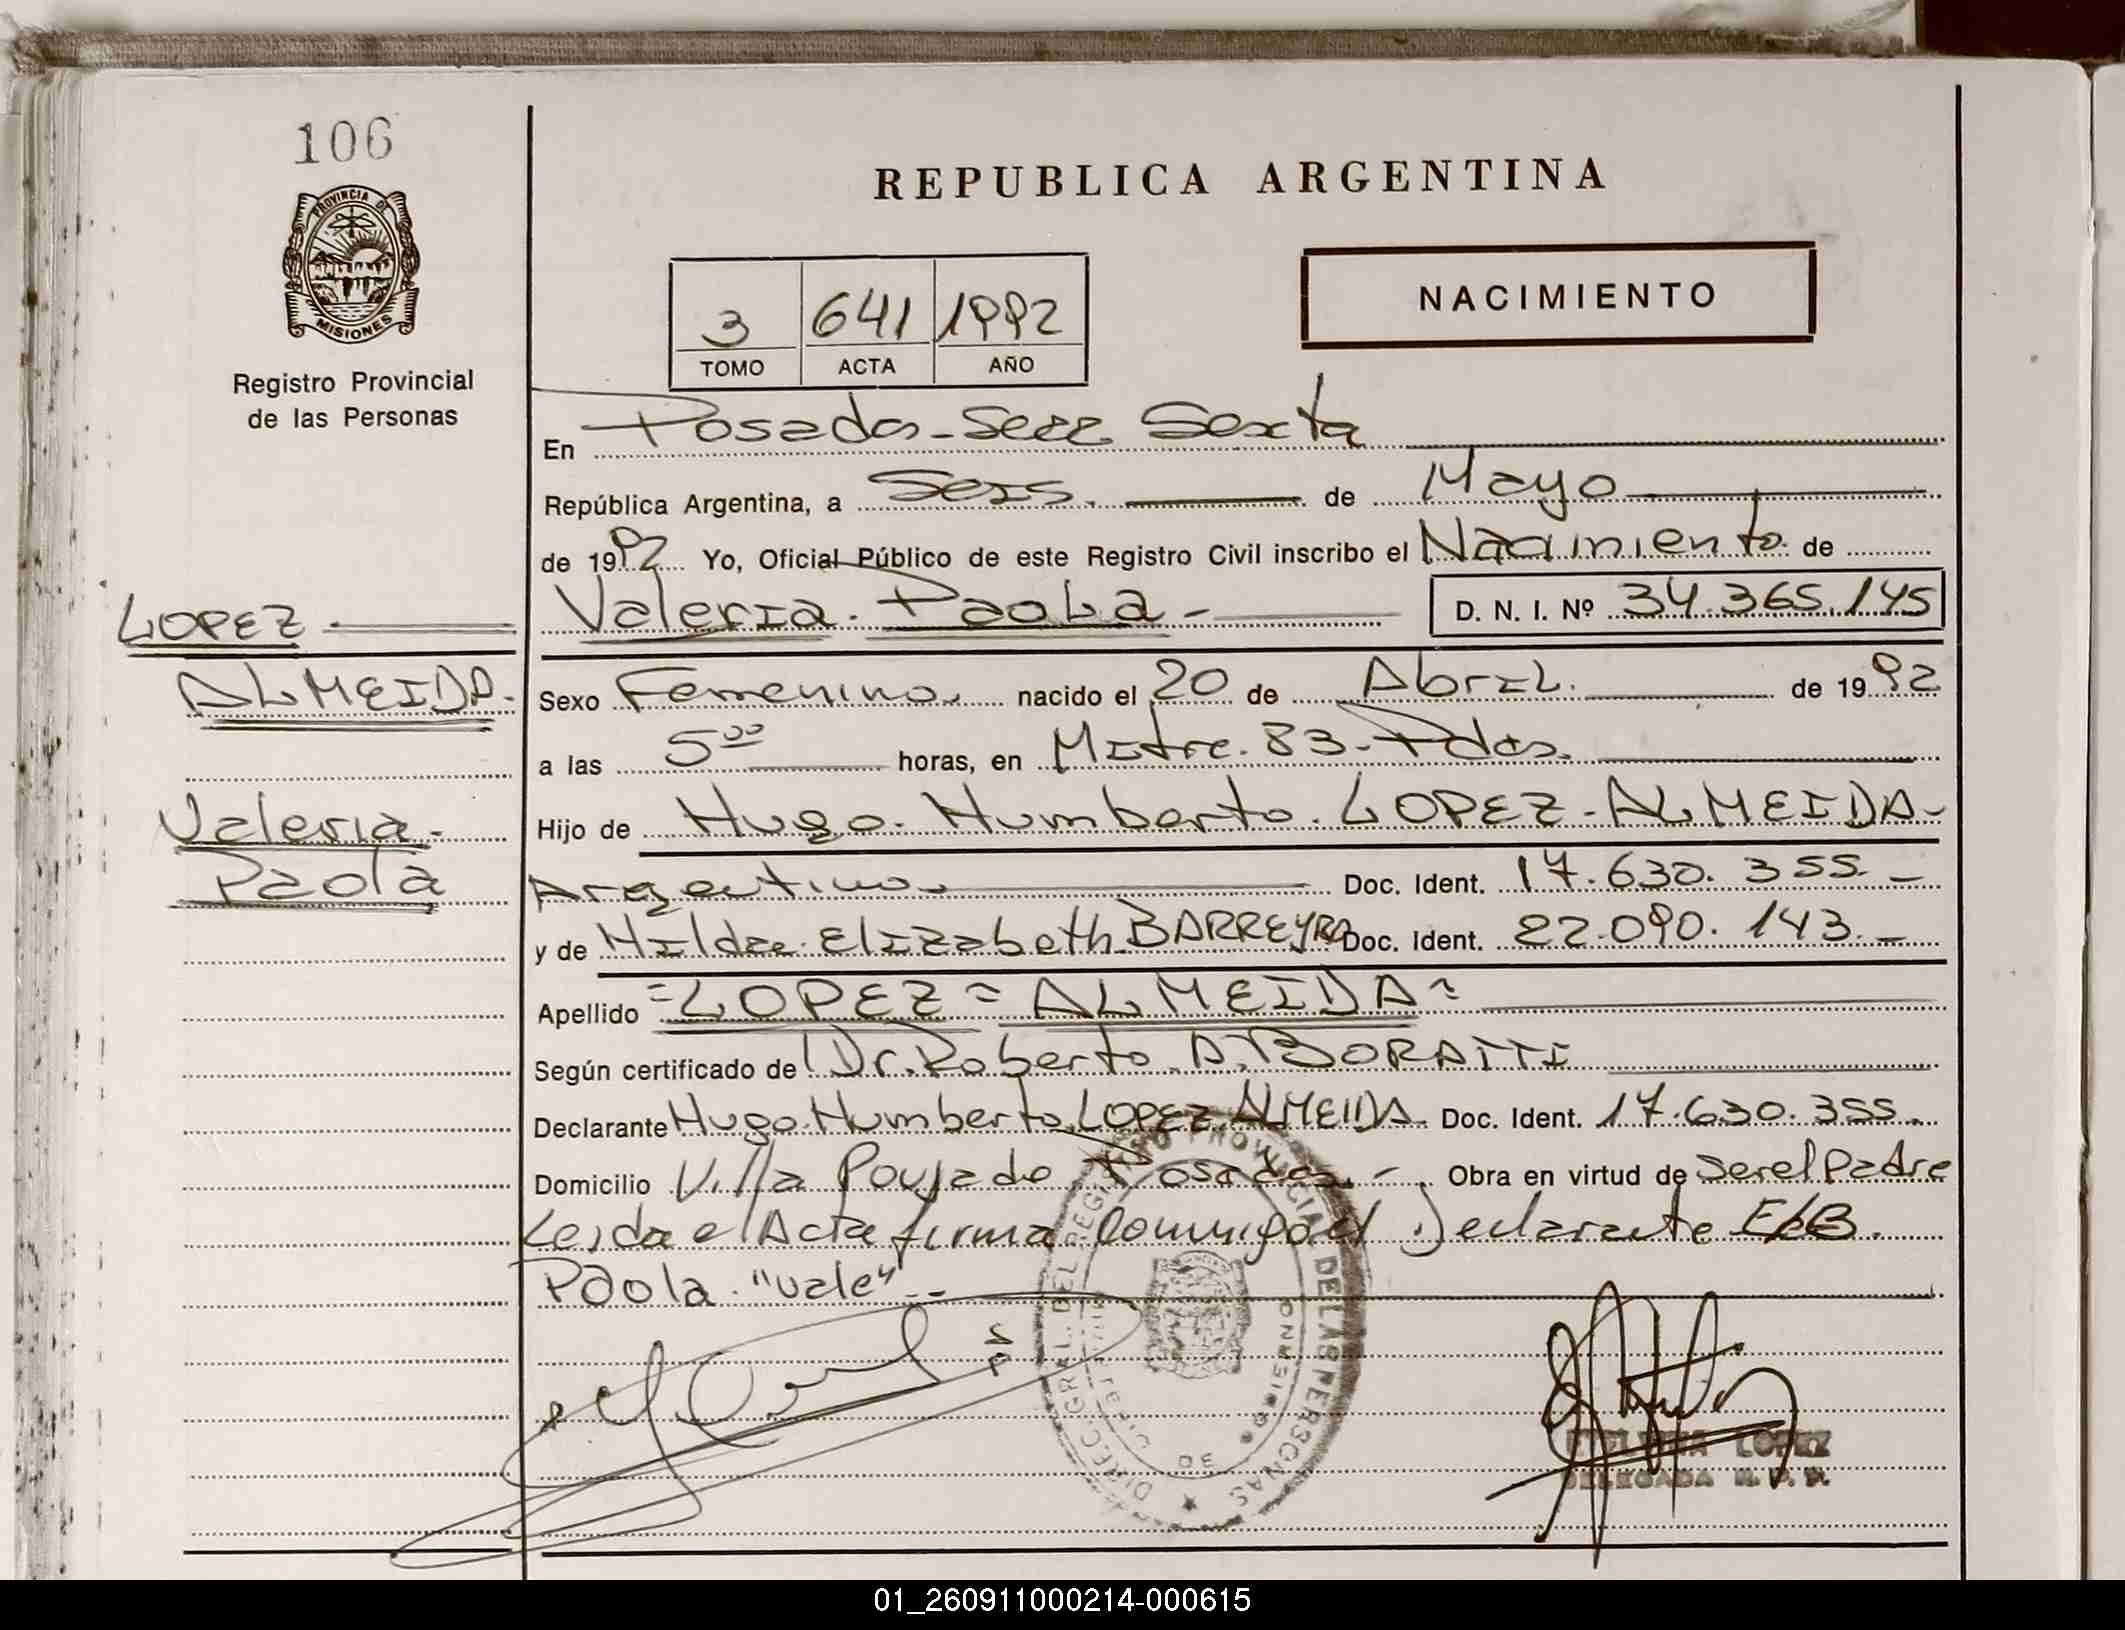 106
REPUBLICA ARGENTINA
PROVINCIA DE
MISIONES
Registro Provincial
de las Personas
NACIMIENTO
3 641 1992
TOMO ACTA AÑO
En Posadas-Secc Sexta
República Argentina, a Seis. de Mayo
de 1992 Yo, Oficial Público de este Registro Civil inscribo el Nacimiento de
LOPEZ
Valeria. Paola - D. N. I. Nº 34.365.145
ALMEIDA.
Sexo Femenino. nacido el 20 de Abril. de 1992
a las 5⁰⁰ horas, en Mitre. 83-Pdas.
Valeria.
Hijo de Hugo. Humberto. LOPEZ-ALMEIDA-
Paola
Argentino. Doc. Ident. 17.630.355.-
y de Hilda. Elizabeth BARREYRO Doc. Ident. 22.090.143.-
Apellido =LOPEZ=ALMEIDA=
Según certificado de Dr. Roberto A.
Declarante Hugo Humberto LOPEZ ALMEIDA. Doc. Ident. 17.630.355.
Domicilio Villa Poujade Posadas.- Obra en virtud de Ser el Padre
Leida el Acta firma Conmigo el Declarante
Paola. "vale".-
DIREC. GRAL. DEL REGISTRO PROVINCIAL DE LAS PERSONAS
LOPEZ
DELEGADA R. P. P.
01_260911000214-000615